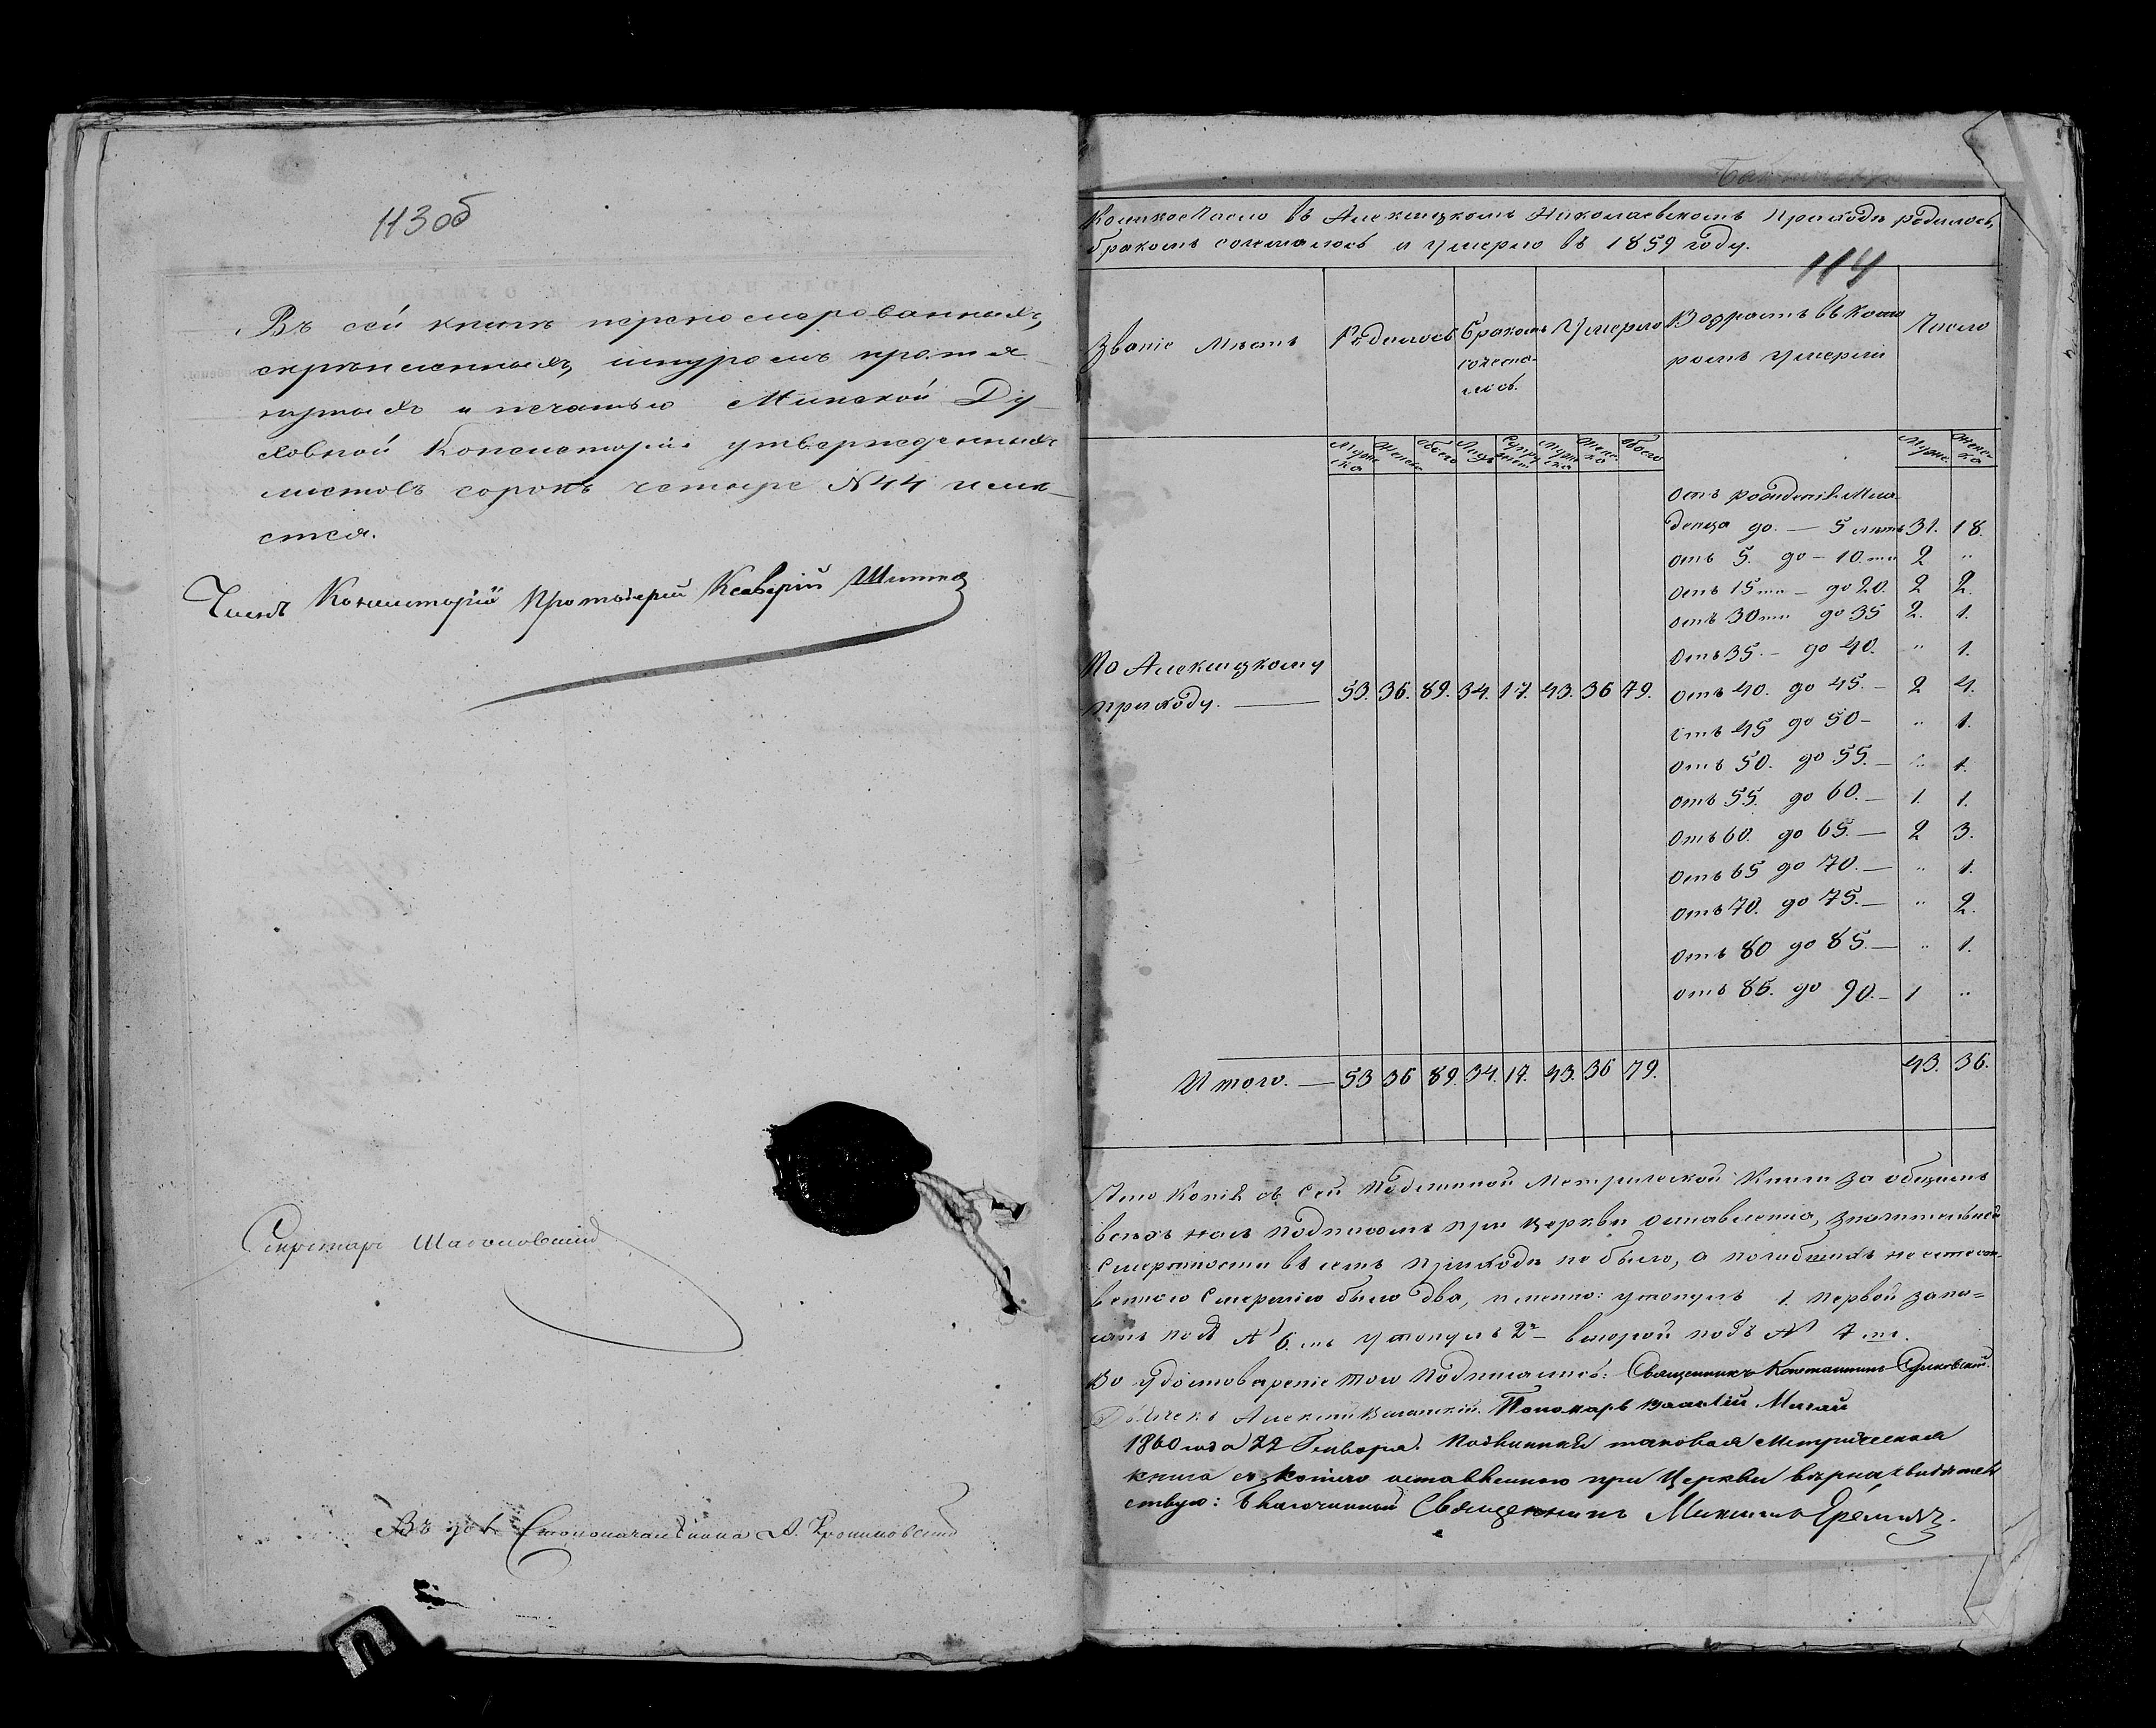 113об
Въ сей книгѣ перенумерованныхъ,
скрѣпленныхъ, шнуромъ протя-
нутыхъ и печатью Минской Ду-
ховной Консисторіи утвержденныхъ
листовъ сорокъ четыре №44 имѣ-
ется.
Членъ Консисторіи Протоіерей Ксаверій
Секретарь
Въ Столоначальника А.
Количество въ Алексицкомъ Николаевскомъ Приходѣ родилось,
бракомъ сочеталось и умерло въ 1859 году.
114
Званіе Мѣстъ Родилось Бракомъ сочета-лось. Умерло Возрастъ въ кото-ромъ умерли Число
Муже-ска Женск. Обоего Лицъ Супру-жест. Муже-ска Женс-ка Обоего Муже. Женс-ка
Отъ рожденія Мла-
денца до — 5 лѣтъ 31. 18.
отъ 5. до — 10.ти 2 "
Отъ 15ти — до 20. 2 2.
отъ 30ти до 35 2. 1.
Отъ 35. — до 40. " 1.
По Алексицкому
приходу. — 53. 36. 89. 34. 17. 43. 36 79. Отъ 40. до 45. — 2 4.
Отъ 45 до 50 — " 1.
Отъ 50. до 55. — " 1.
Отъ 55. до 60. — 1. 1.
Отъ 60. до 65. — 2 3.
Отъ 65 до 70. — " 1.
Отъ 70. до 75. — " 2.
Отъ 80 до 85. — " 1.
отъ 85. до 90. — 1 "
Итого. — 53 36 89. 34. 17. 43. 36 79. 43. 36.
Что Копія съ Сей Подлинной Метрической Книги за общимъ
всѣхъ насъ подписомъ при церкви оставлена, значительной
Смертности въ семъ приходѣ не было, а погибшихъ неестест-
венною Смертію было два, именно: утонулъ 1. первой запи-
санъ подъ № 6.мъ утонулъ 2й — второй подъ № 7 мъ.
Во удостовѣреніе того Подписались: Священникъ Константинъ
Дьячекъ Алексій Пономарь
1860 года 22 Генваря. Подлинная таковая Метрическая
книга съ копіею оставленною при Церкви вѣрна свидѣтель-
ствую: Благочинный Священникъ